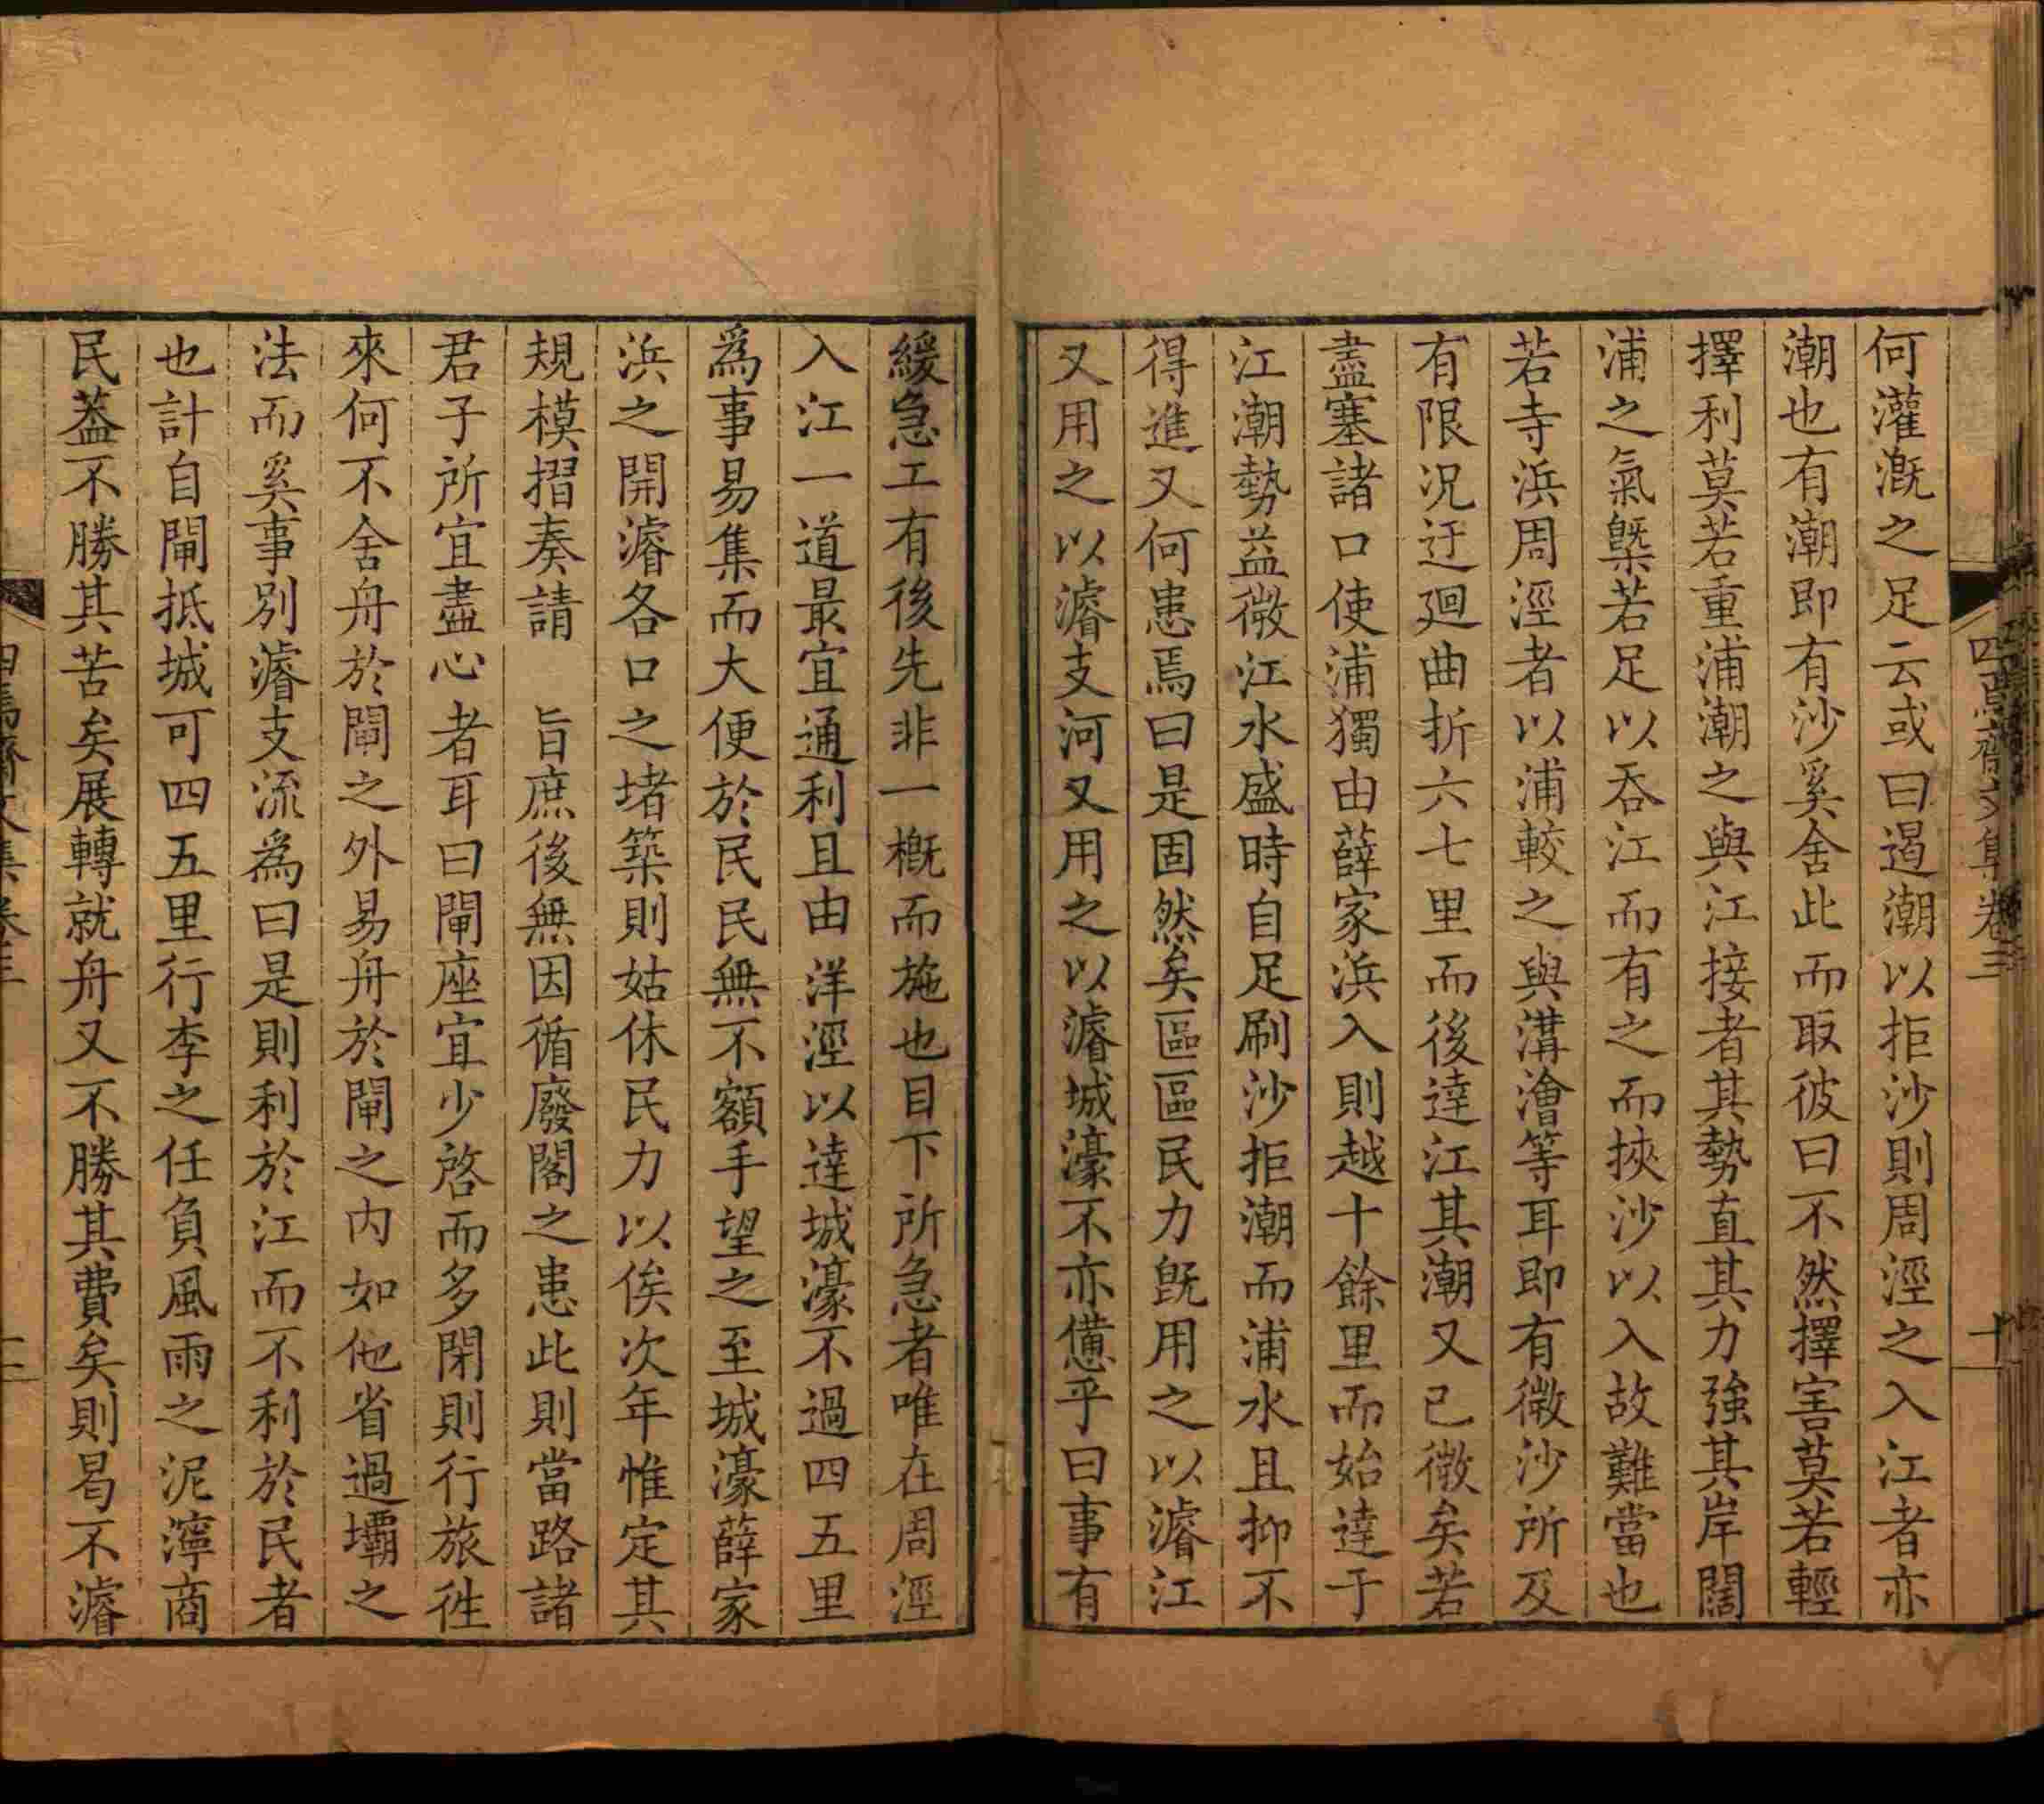 四焉齋文集卷三
十一
何灌漑之足云或曰遏潮以拒沙則周涇之入江者亦
潮也有潮即有沙奚舍此而取彼曰不然擇害莫若輕
擇利莫若重浦潮之與江接者其勢直其力強其岸闊
浦之氣槩若足以吞江而有之而挾沙以入故難當也
若寺浜周涇者以浦較之與溝澮等耳即有微沙所及
有限況迂廻曲折六七里而後達江其潮又已微矣若
盡塞諸口使浦獨由薛家浜入則越十餘里而始達于
江潮勢益微江水盛時自足刷沙拒潮而浦水且抑不
得進又何患焉曰是固然矣區區民力旣用之以濬江
又用之以濬支河又用之以濬城濠不亦憊乎曰事有
緩急工有後先非一槪而施也目下所急者唯在周涇
入江一道最宜通利且由洋涇以達城濠不過四五里
爲事易集而大便於民民無不額手望之至城濠薛家
浜之開濬各口之堵築則姑休民力以俟次年惟定其
規模摺奏請 旨庶後無因循廢閣之患此則當路諸
君子所宜盡心者耳曰閘座宜少啓而多閉則行旅徃
來何不舍舟於閘之外易舟於閘之內如他省過壩之
法而奚事別濬支流爲曰是則利於江而不利於民者
也計自閘抵城可四五里行李之任負風雨之泥濘商
民葢不勝其苦矣展轉就舟又不勝其費矣則曷不濬